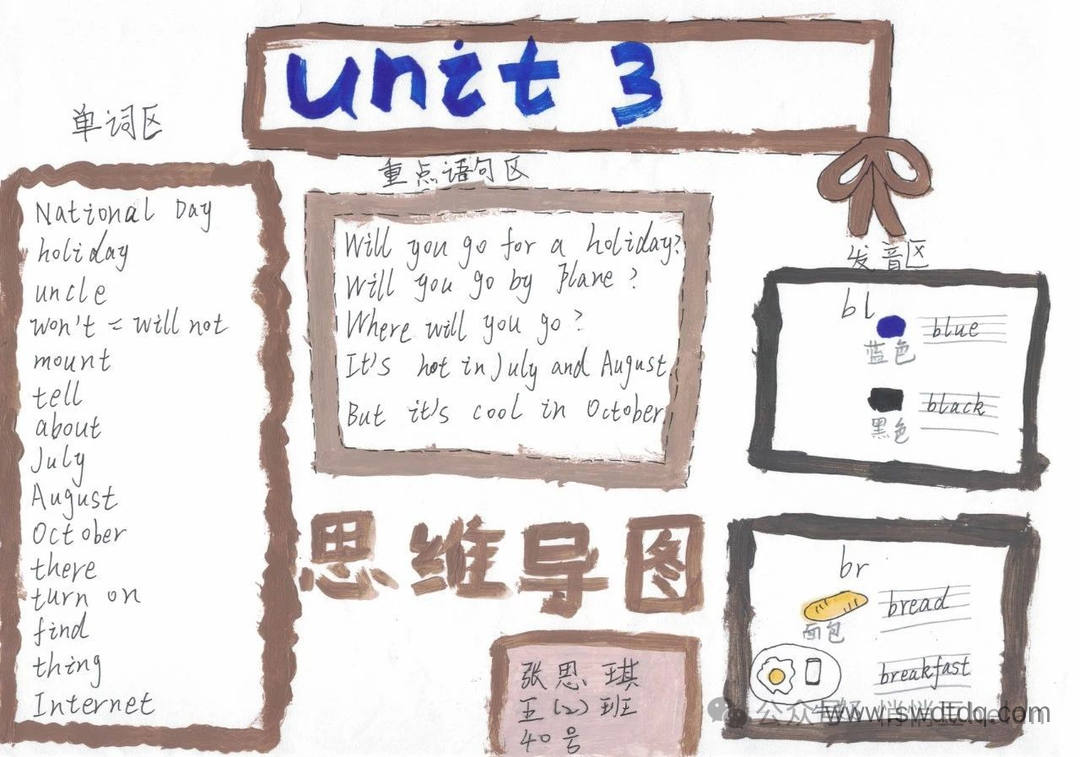 unit 3
单词区
National Day
holiday
uncle
won't = will not
mount
tell
about
July
August
October
there
turn on
find
thing
Internet
重点语句区
Will you go for a holiday?
Will you go by Plane ?
Where will you go ?
It's hot in July and August.
But it's cool in October.
发音区
bl
blue
蓝色
black
黑色
br
bread
面包
breakfast
思维导图
张思琪
五(2)班
40号
公众号
www.swdtdq.com